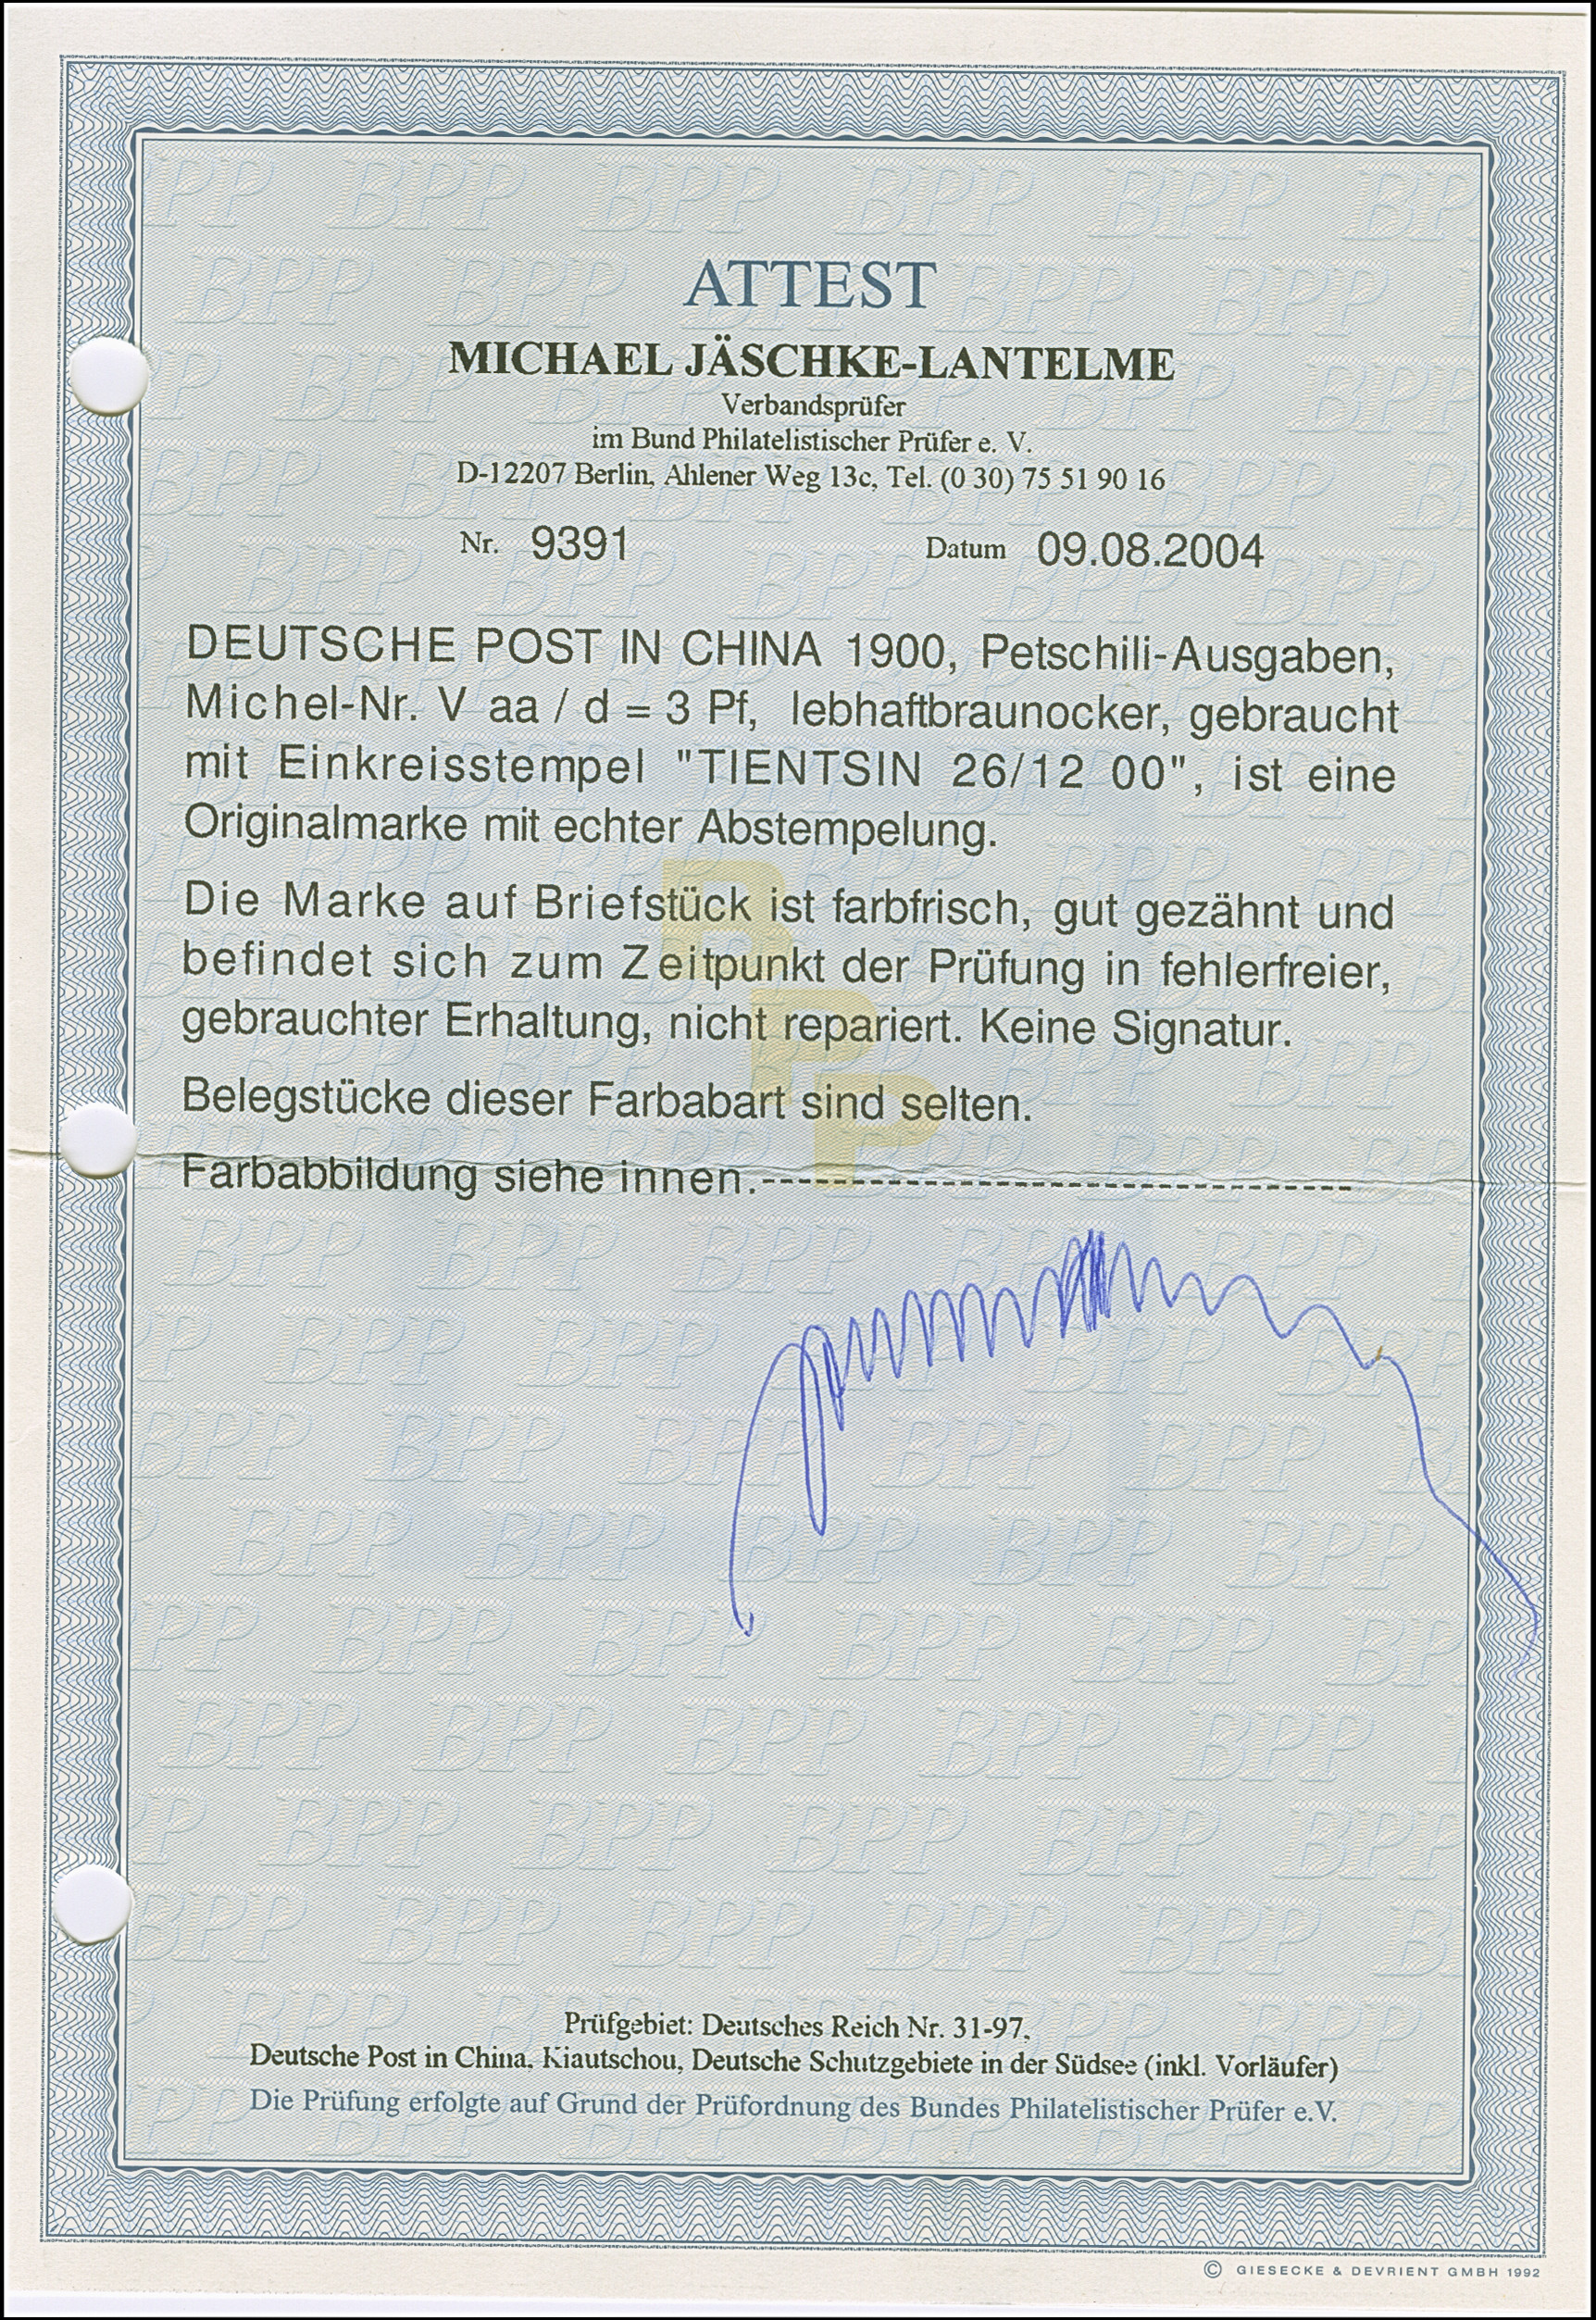 ATTEST
MICHAEL JÄSCHKE-LANTELME
Verbandsprüfer
im Bund Philatelistischer Prüfer e. V.
D-12207 Berlin, Ahlener Weg 13c, Tel. (0 30) 75 51 90 16
Nr. 9391 Datum 09.08.2004
DEUTSCHE POST IN CHINA 1900, Petschili-Ausgaben,
Michel-Nr. V aa / d = 3 Pf, lebhaftbraunocker, gebraucht
mit Einkreisstempel "TIENTSIN 26/12 00", ist eine
Originalmarke mit echter Abstempelung.
Die Marke auf Briefstück ist farbfrisch, gut gezähnt und
befindet sich zum Zeitpunkt der Prüfung in fehlerfreier,
gebrauchter Erhaltung, nicht repariert. Keine Signatur.
Belegstücke dieser Farbabart sind selten.
Farbabbildung siehe innen.------------------------------------
BPP
Prüfgebiet: Deutsches Reich Nr. 31-97,
Deutsche Post in China, Kiautschou, Deutsche Schutzgebiete in der Südsee (inkl. Vorläufer)
Die Prüfung erfolgte auf Grund der Prüfordnung des Bundes Philatelistischer Prüfer e.V.
© GIESECKE & DEVRIENT GMBH 1992